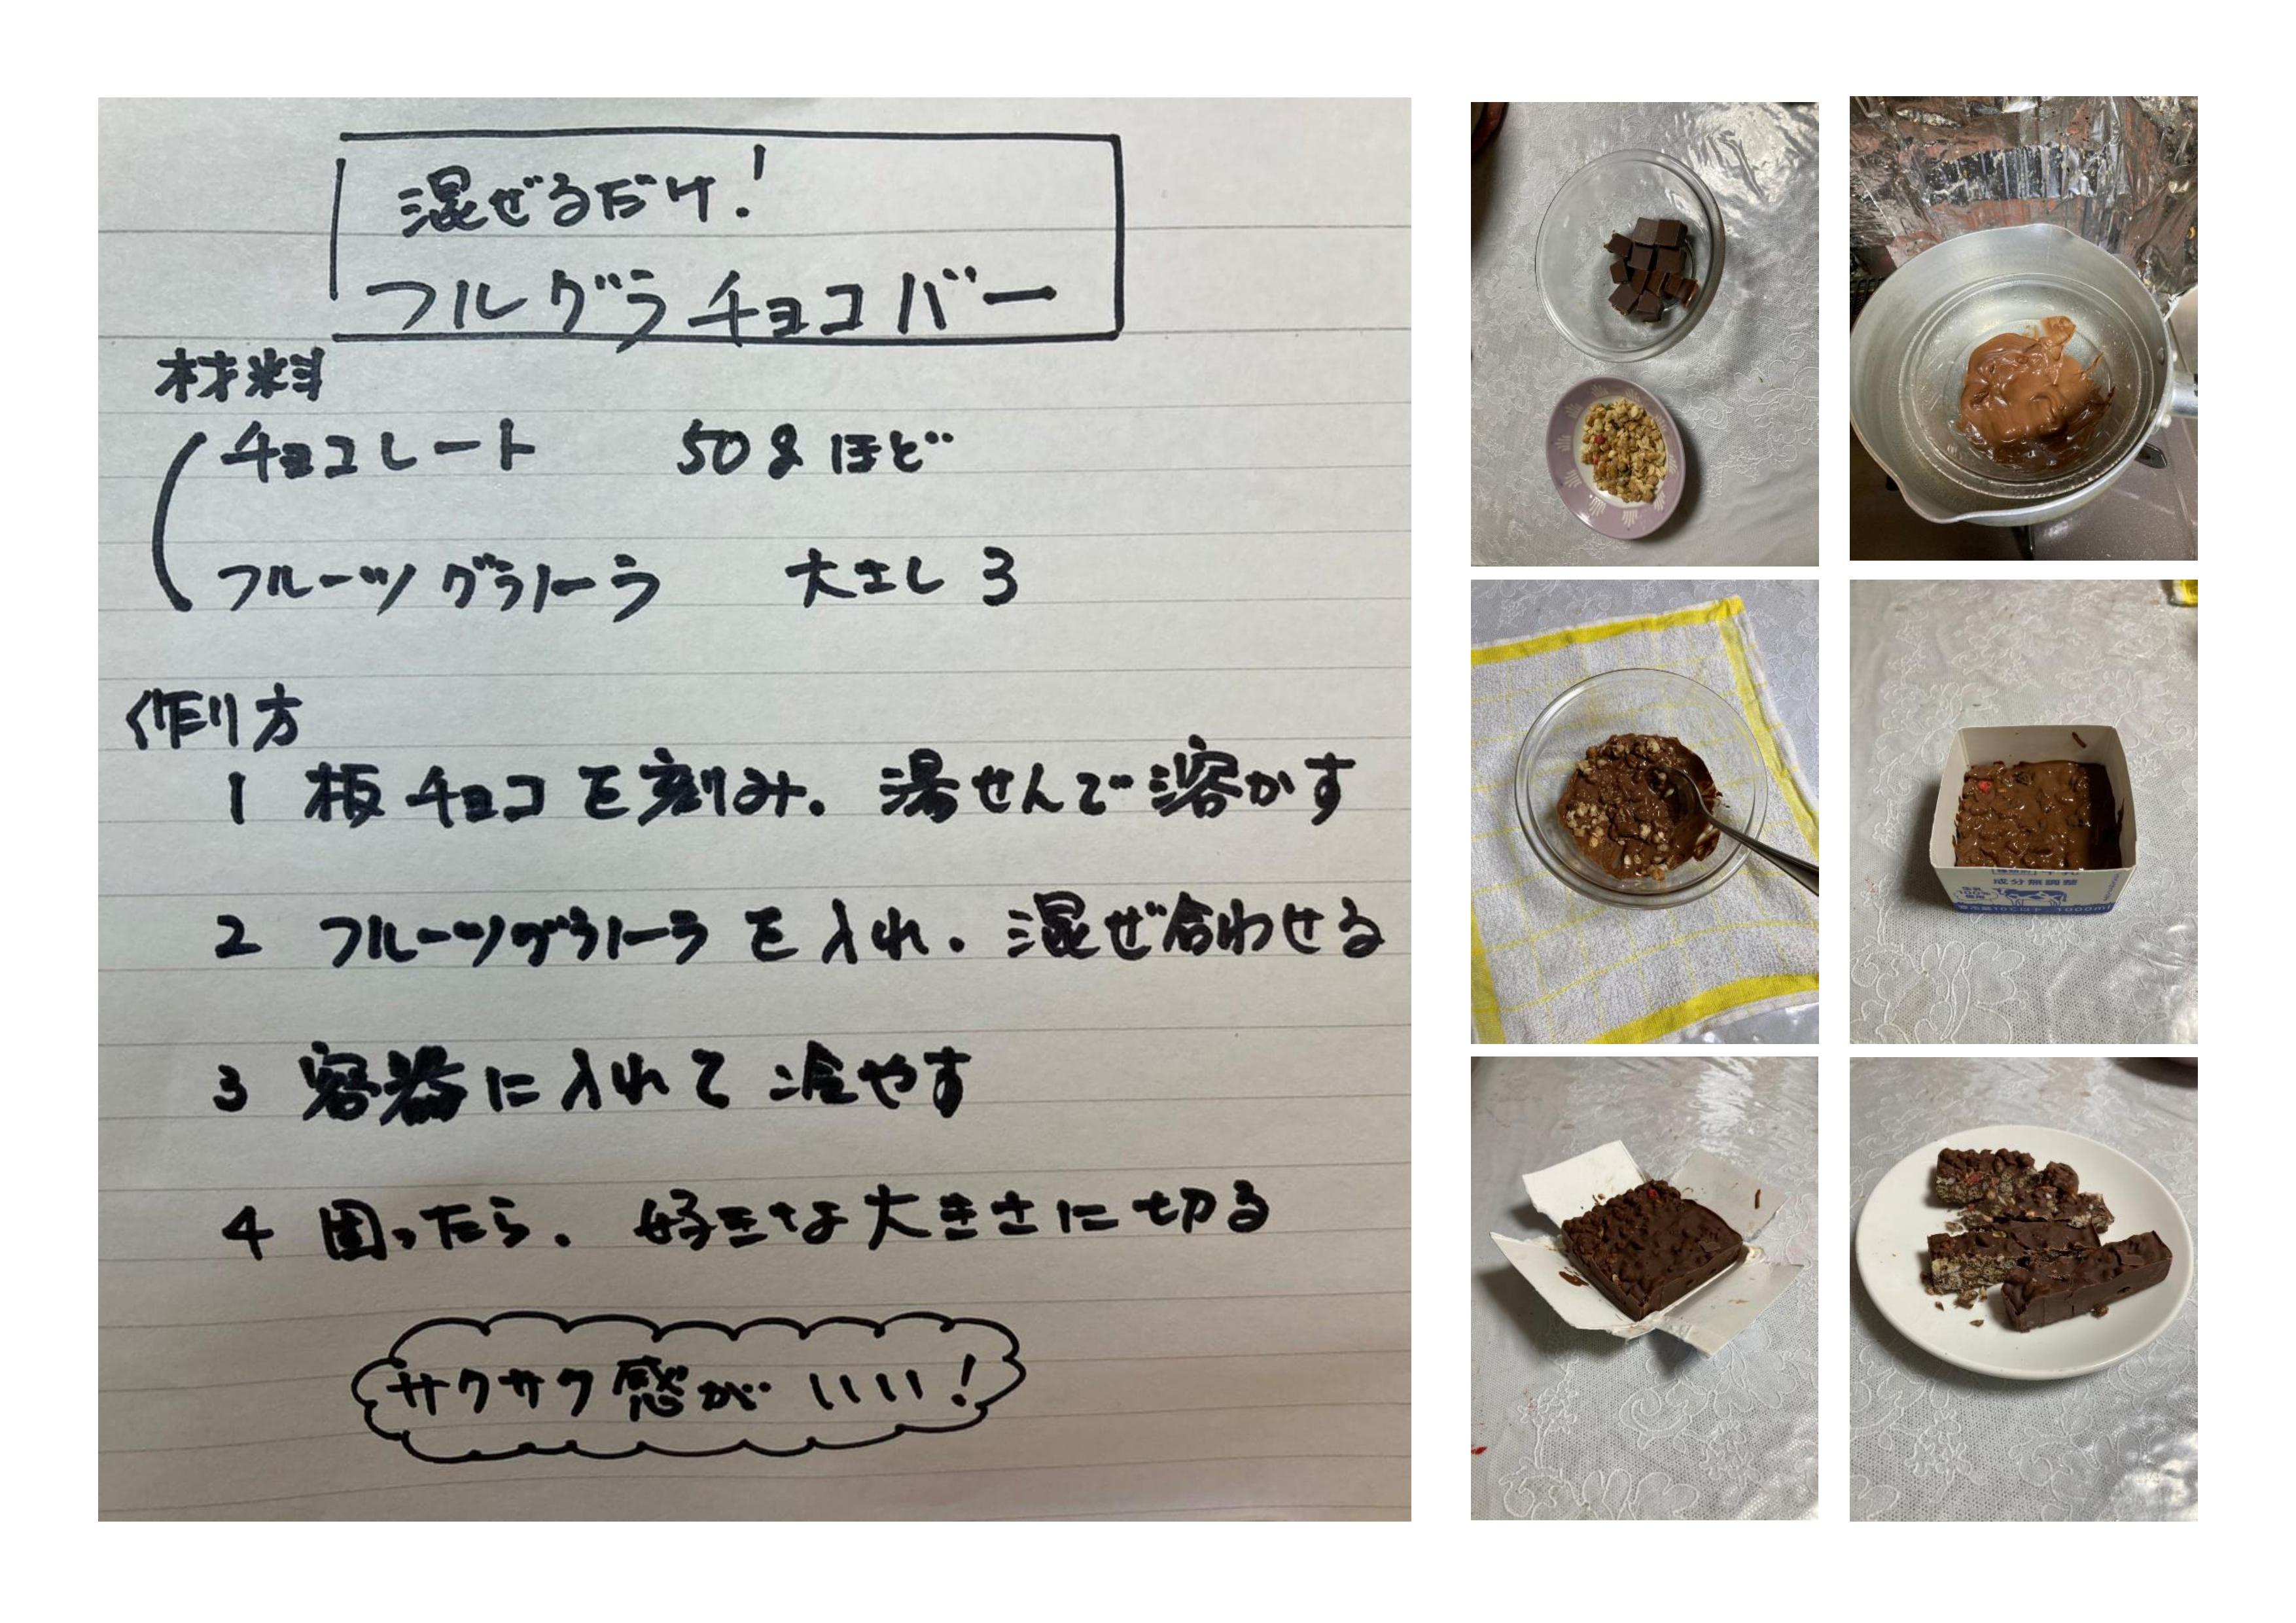 混ぜるだけ!
フルグラチョコバー
材料
チョコレート 50gほど
フルーツグラノーラ 大さじ3
作り方
1 板チョコを刻み、湯せんで溶かす
2 フルーツグラノーラを入れ、混ぜ合わせる
3 容器に入れて冷やす
4 固ったら、好きな大きさに切る
サクサク感がいい!
成分無調整
1000ml